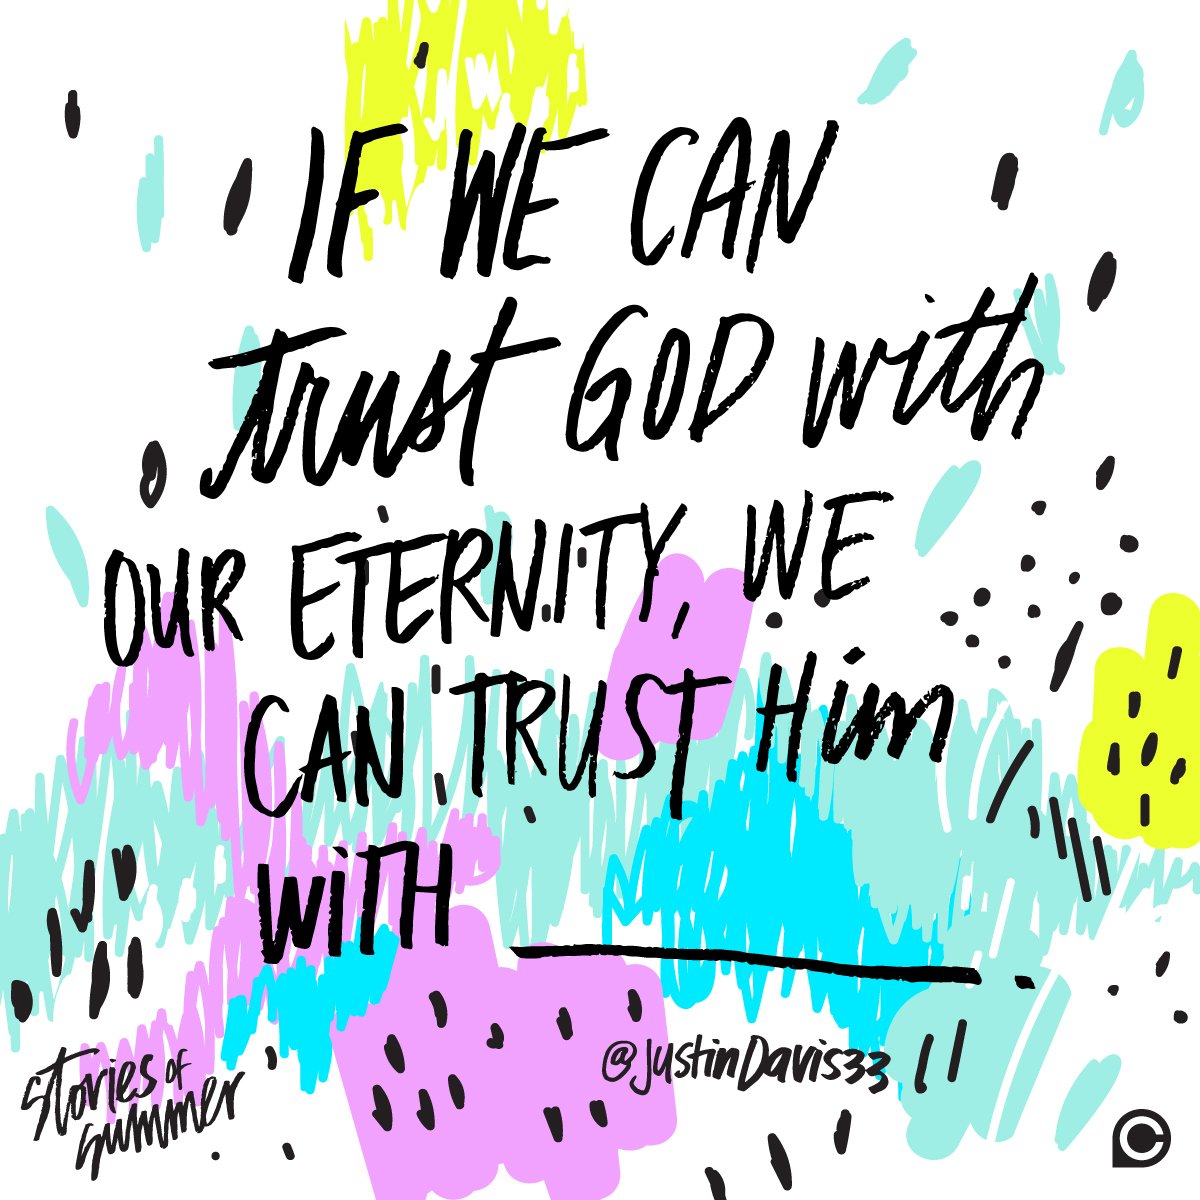 IF WE CAN
trust GOD with
OUR ETERNITY, WE
CAN TRUST Him
WiTH ________.
stories of
summer
@JustinDavis33